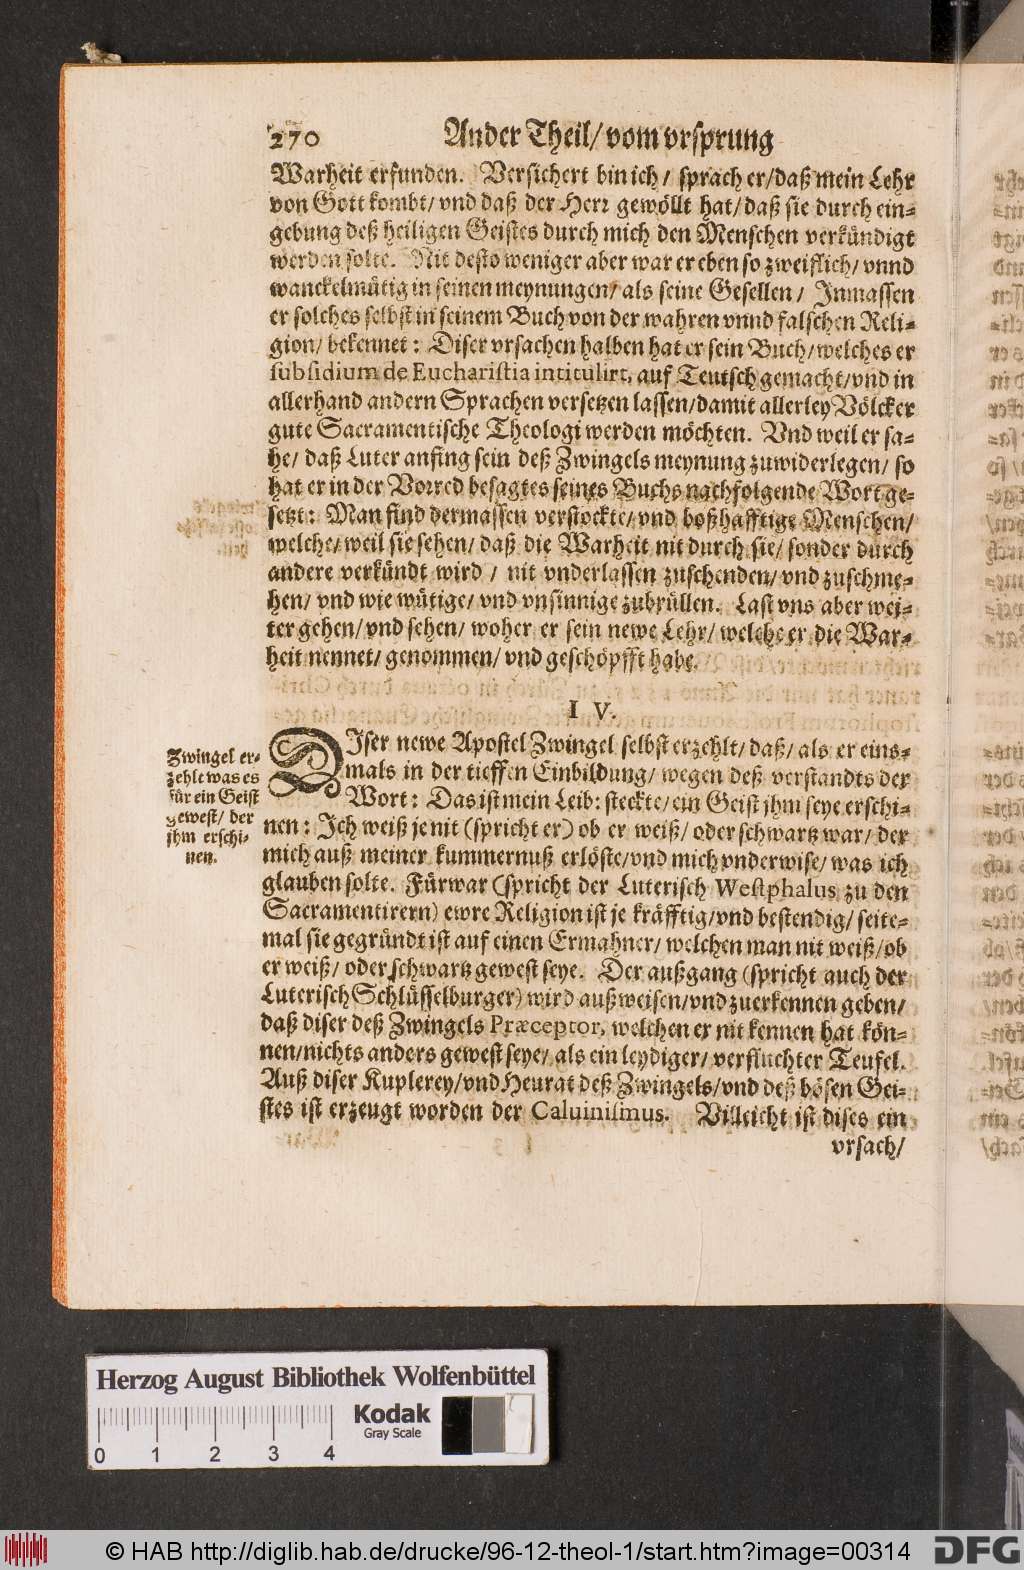 270 Ander Theil/ vom vrsprung
Warheit erfunden. Versichert bin ich/ sprach er/ daß mein Lehr
von Gott kombt/ vnd daß der Herr gewöllt hat/ daß sie durch ein-
gebung deß heiligen Geistes durch mich den Menschen verkündigt
werden solte. Nit desto weniger aber war er eben so zweiflich/ vnnd
wanckelmütig in seinen meynungen/ als seine Gesellen/ Inmassen
er solches selbst in seinem Buch von der wahren vnnd falschen Reli-
gion/ bekennet: Diser vrsachen halben hat er sein Buch/ welches er
subsidium de Eucharistia intitulirt, auf Teutsch gemacht/ vnd in
allerhand andern Sprachen versetzen lassen/ damit allerley Völcker
gute Sacramentische Theologi werden möchten. Vnd weil er sa-
he/ daß Luter anfing sein deß Zwingels meynung zuwiderlegen/ so
hat er in der Vorred besagtes seines Buchs nachfolgende Wort ge-
setzt: Man find dermassen verstockte/ vnd boßhafftige Menschen/
welche/ weil sie sehen/ daß die Warheit nit durch sie/ sonder durch
andere verkündt wird/ nit vnderlassen zuschenden/ vnd zuschme-
hen/ vnd wie wütige/ vnd vnsinnige zubrüllen. Last vns aber wei-
ter gehen/ vnd sehen/ woher er sein newe Lehr/ welche er die War-
heit nennet/ genommen/ vnd geschöpfft habe.
IV.
DIser newe Apostel Zwingel selbst erzehlt/ daß/ als er eins-
mals in der tieffen Einbildung/ wegen deß verstandts der
Wort: Das ist mein Leib: steckte/ ein Geist jhm seye erschi-
nen: Ich weiß je nit (spricht er) ob er weiß/ oder schwartz war/ der
mich auß meiner kummernuß erlöste/ vnd mich vnderwise/ was ich
glauben solte. Fürwar (spricht der Luterisch Westphalus zu den
Sacramentirern) ewre Religion ist je kräfftig/ vnd bestendig/ seite-
mal sie gegründt ist auf einen Ermahner/ welchen man nit weiß/ ob
er weiß/ oder schwartz gewest seye. Der außgang (spricht auch der
Luterisch Schlüsselburger) wird außweisen/ vnd zuerkennen geben/
daß diser deß Zwingels Præceptor, welchen er nit kennen hat kön-
nen/ nichts anders gewest seye/ als ein leydiger/ verfluchter Teufel.
Auß diser Kuplerey/ vnd Heurat deß Zwingels/ vnd deß bösen Gei-
stes ist erzeugt worden der Caluinismus. Villeicht ist dises ein
vrsach/
Zwingel er-
zehlt was es
für ein Geist
gewest/ der
jhm erschi-
nen.
Herzog August Bibliothek Wolfenbüttel
Kodak
Gray Scale
0 1 2 3 4
© HAB http://diglib.hab.de/drucke/96-12-theol-1/start.htm?image=00314
DFG